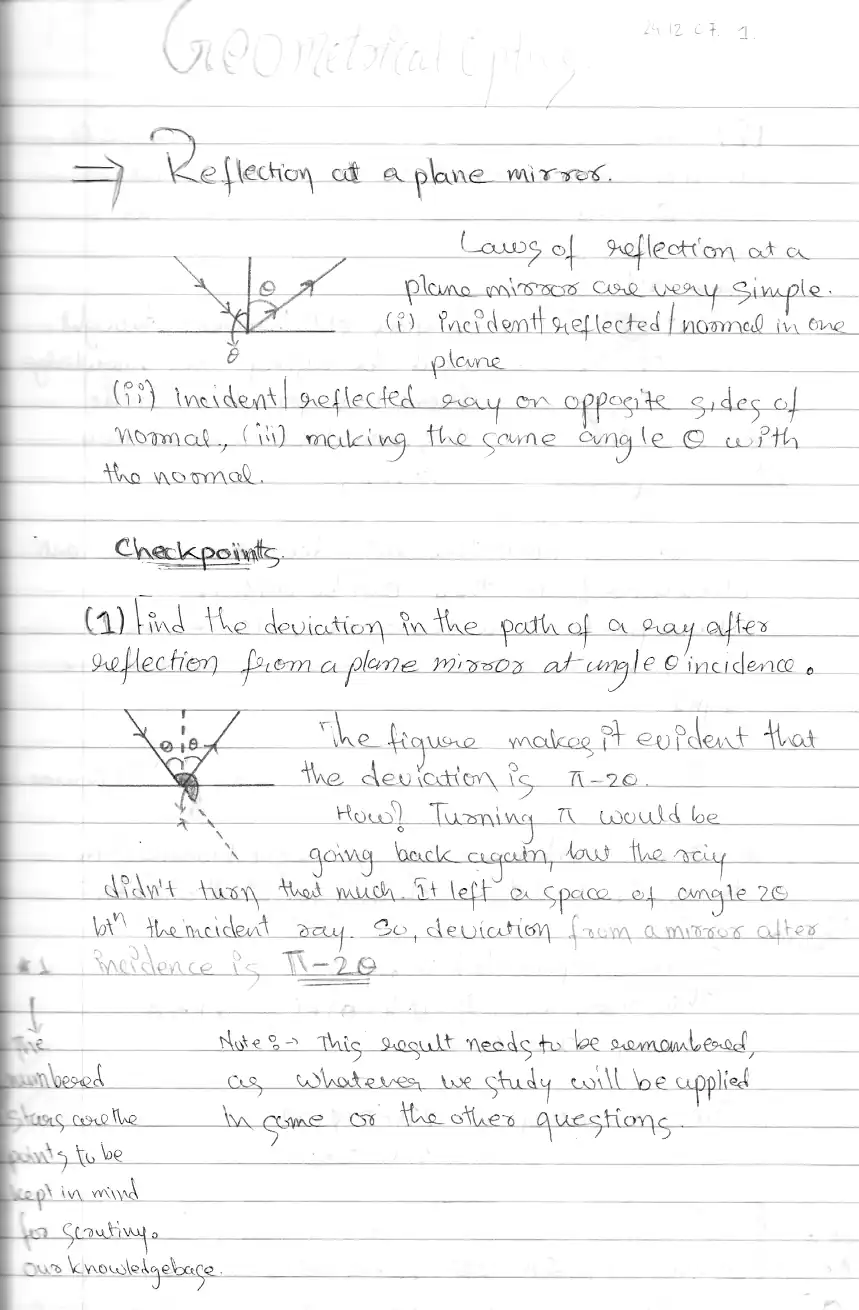 Geometrical Optics
24.12.07. 1.
⇒ Reflection at a plane mirror.
Laws of reflection at a
plane mirror are very simple.
θ
(i) incident/reflected/normal in one
θ
plane
(ii) incident/reflected ray on opposite sides of
normal, (iii) making the same angle θ with
the normal.
Checkpoints.
(1) Find the deviation in the path of a ray after
reflection from a plane mirror at angle θ incidence.
θ θ
The figure makes it evident that
the deviation is π-2θ.
How? Turning π would be
going back again, but the ray
didn't turn that much. It left a space of angle 2θ
btⁿ the incident ray. So, deviation from a mirror after
*1 incidence is π-2θ
Note :→ This result needs to be remembered,
as whatever we study will be applied
in some or the other questions.
The
numbered
stars are the
points to be
kept in mind
for scrutiny.
our knowledgebase.